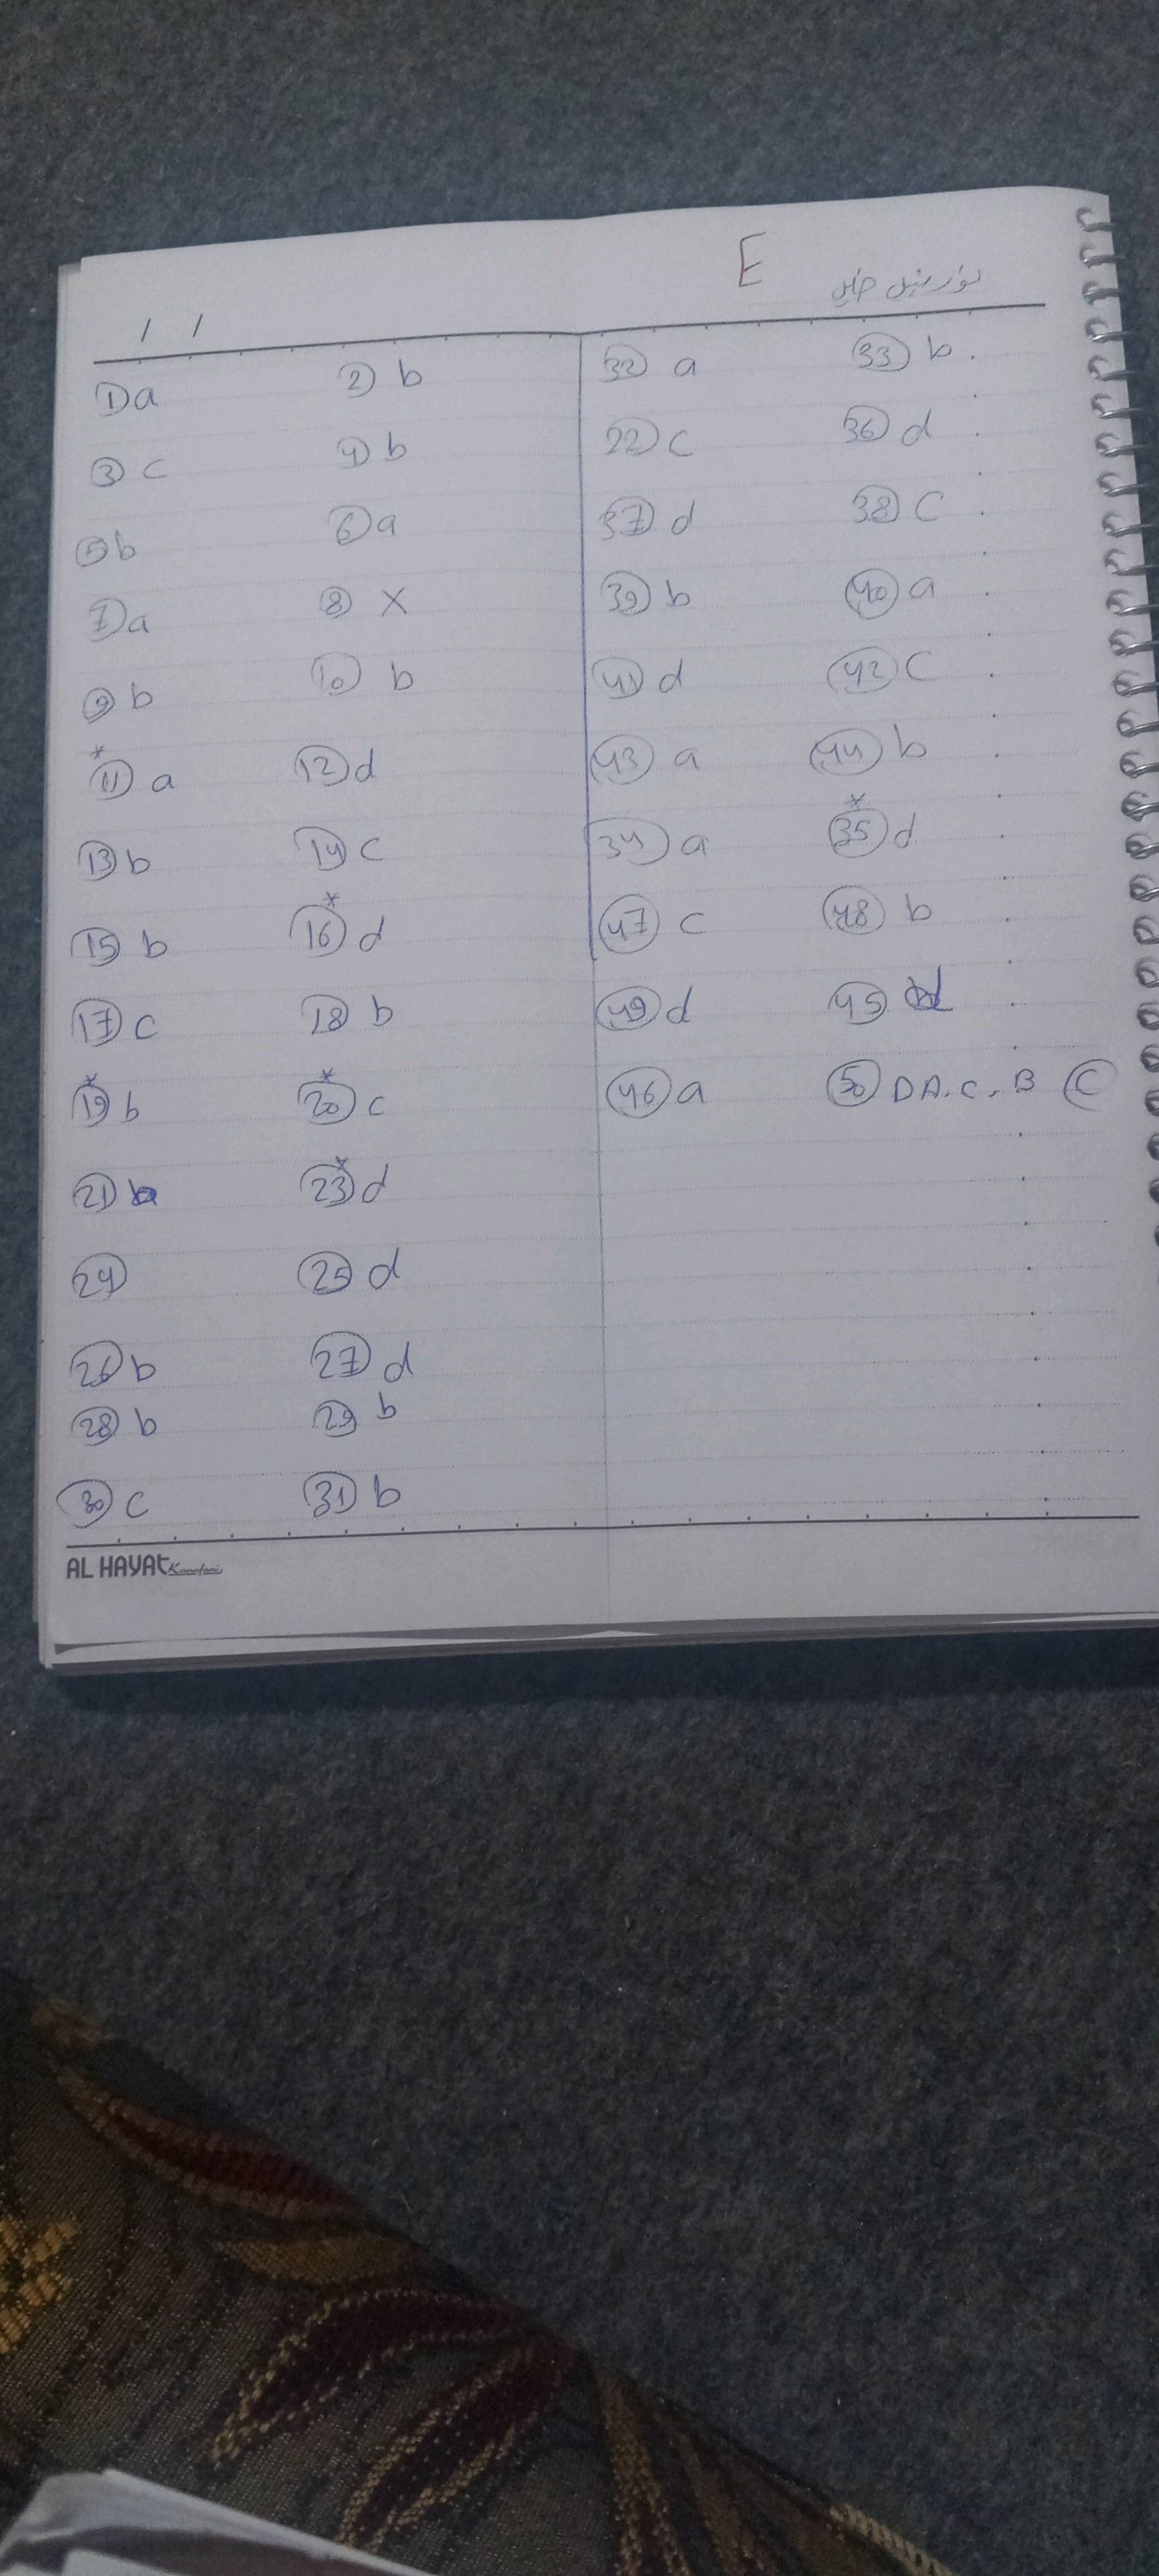 E
/ /
1 a
2 b
3 c
4 b
5 b
6 a
7 a
8 X
9 b
10 b
* 11 a
12 d
13 b
14 c
15 b
* 16 d
17 c
18 b
* 19 b
* 20 c
21
* 23 d
24
25 d
26 b
27 d
28 b
29 b
30 c
31 b
32 a
33 b
22 c
36 d
37 d
38 C
39 b
40 a
41 d
42 C
43 a
44 b
34 a
* 35 d
47 c
48 b
49 d
45 d
46 a
50 D A. C. B C
AL HAYAt Kanafani